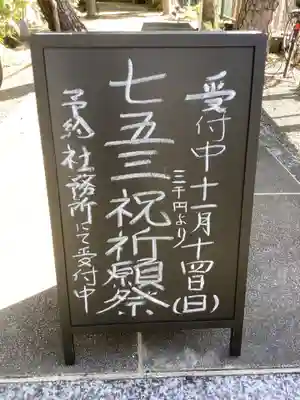 受付中 十一月十四日(日)
三千円より
七五三祝祈願祭
予約社務所にて受付中